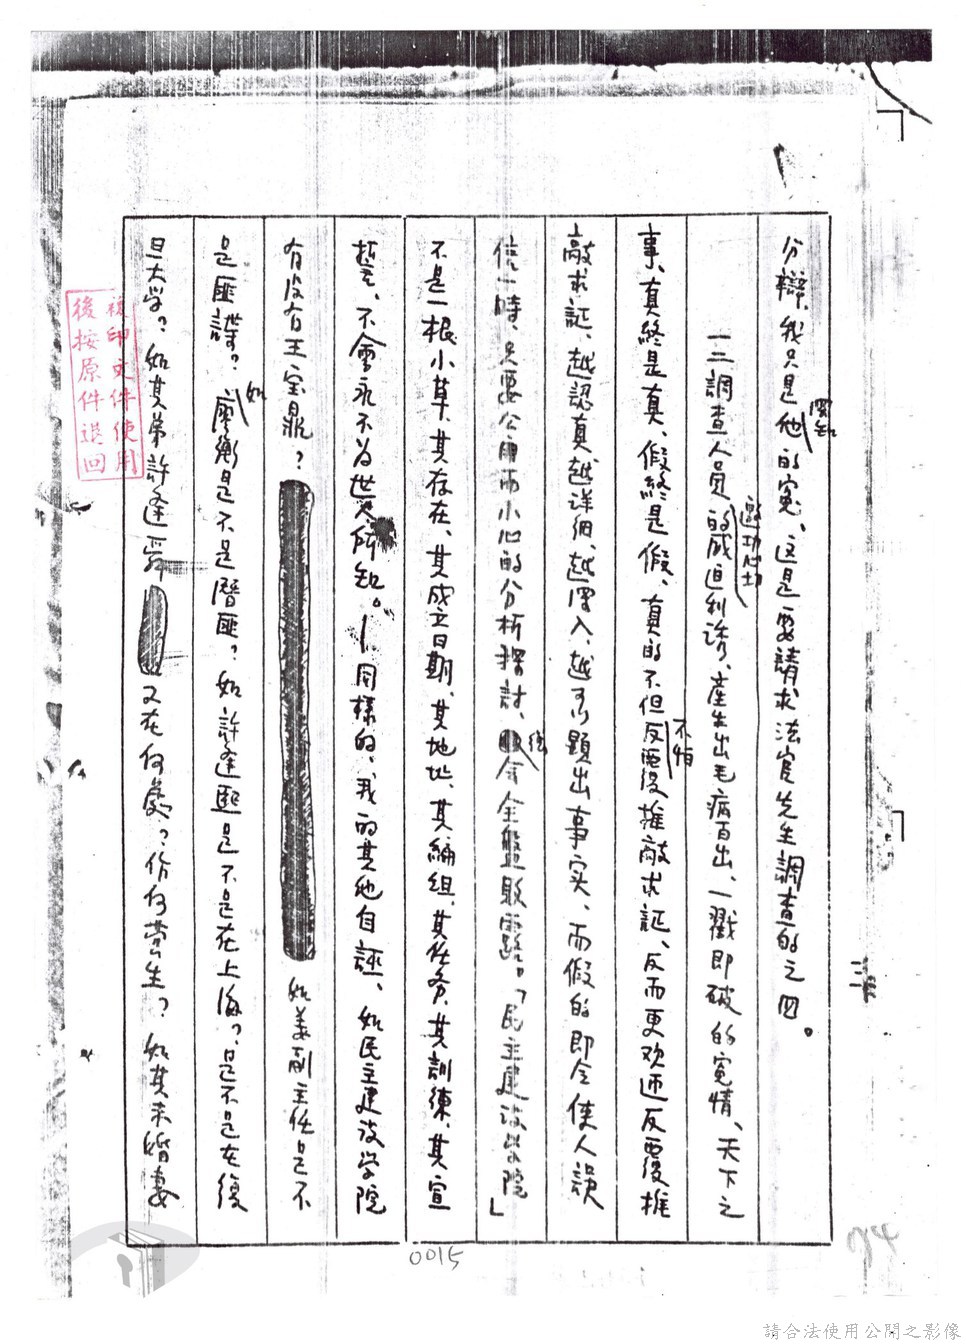 分辯、我只是他的冤、这是要請求法官先生調查的之四。
一二調查人員邀功心切的威迫利诱、產生出毛病百出、一戳即破的冤情、天下之
事、真終是真、假終是假、真的不但不怕反覆推敲求証、反而更欢迎反覆推
敲求証、越認真、越详细、越深入、越可顕出事实、而假的即令使人誤
信一時、只要公庸而小心的分析探討、終会全盤敗露。「民主建设学院」
不是一根小草、其存在、其成立日期、其地址、其編組、其任务、其訓練、其宣
誓、不會永不为世人所知。同樣的、我的其他自誣、如民主建设学院
有没有王宝鼎？如姜副主任是不
是匪諜？如廖衡是不是潛匪？如許逢熙是不是在上海？是不是在復
旦大学？如其弟許逢舜又在何處？作何营生？如其未婚妻
複印文件使用
後按原件退回
0015
請合法使用公開之影像